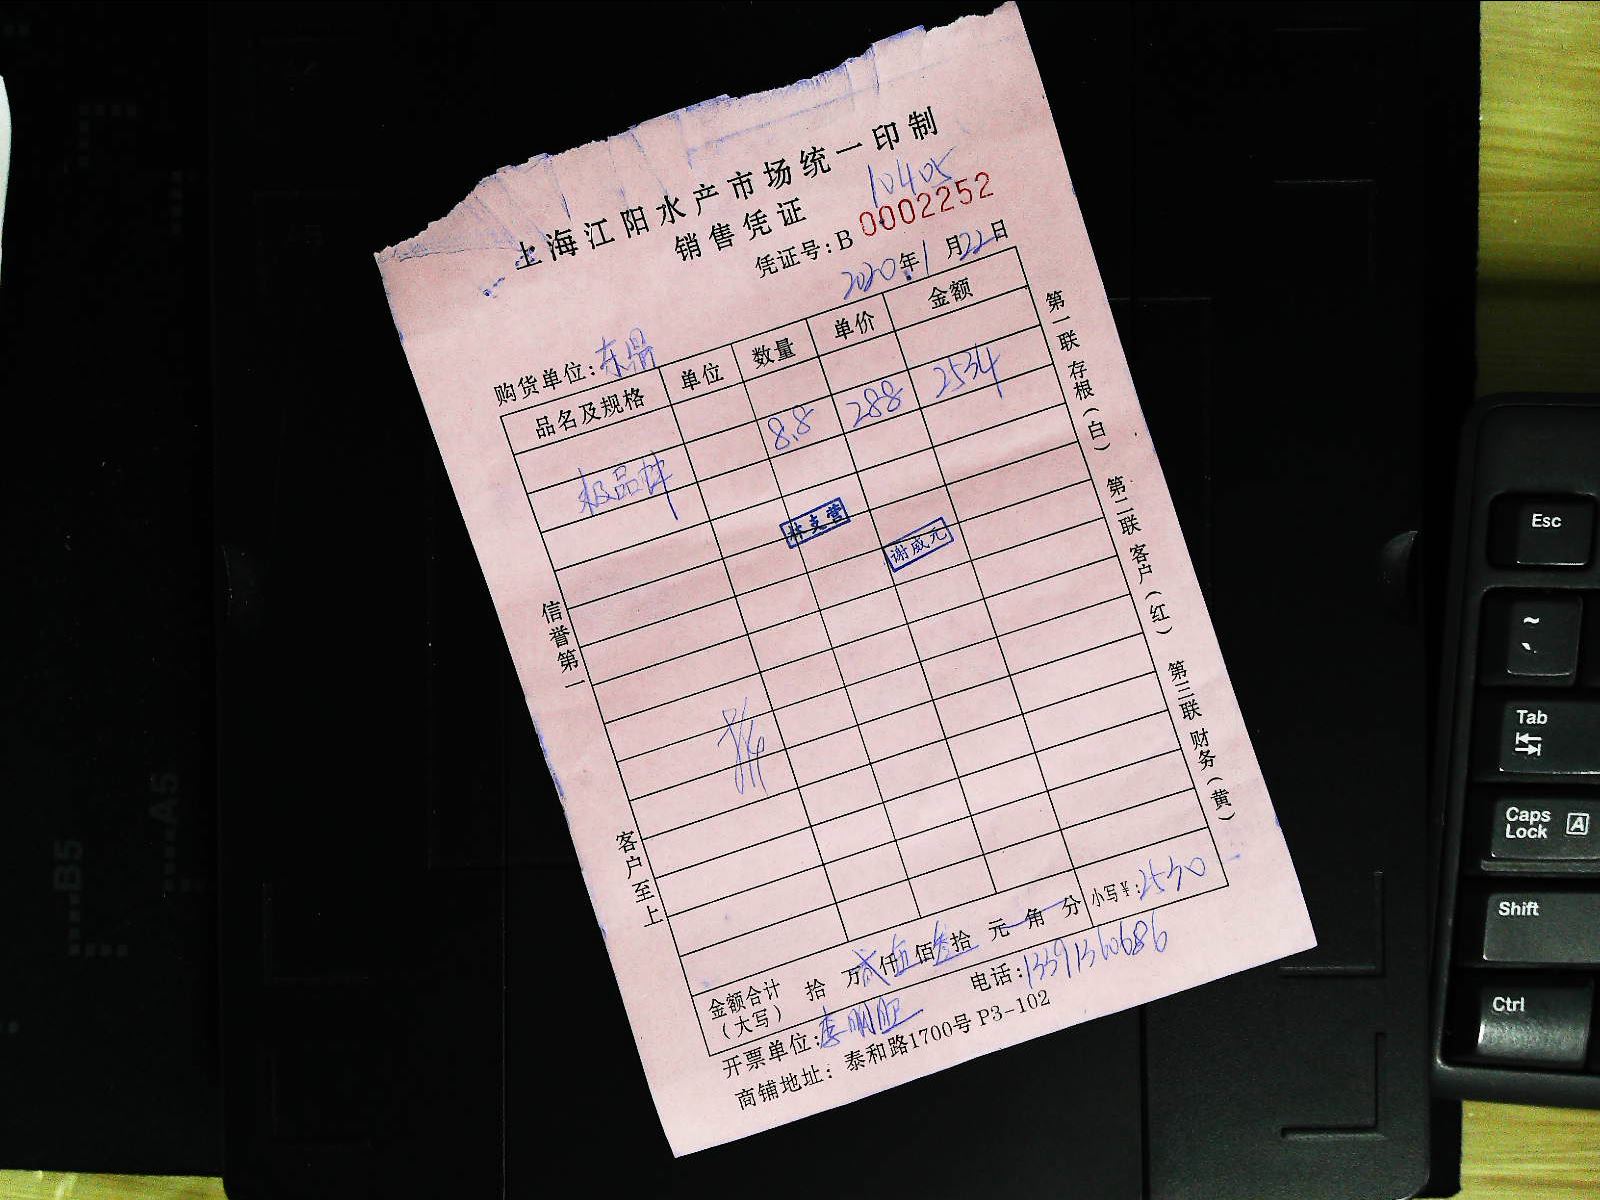 上海江阳水产市场统一印制
销售凭证
10405
凭证号: B 0002252
2020年1月22日
购货单位: 东鼎
品名及规格 单位 数量 单价 金额
极品 8.8 288 2534
林支营
谢威元
信誉第一
客户至上
第一联 存根(白) 第二联 客户(红) 第三联 财务(黄)
金额合计(大写) 拾 万 贰仟伍佰叁拾 元 角 分 小写¥: 2530
开票单位: 李明 电话: 13391360686
商铺地址: 泰和路1700号 P3-102
B5
A5
Esc
~
Tab
Caps Lock A
Shift
Ctrl